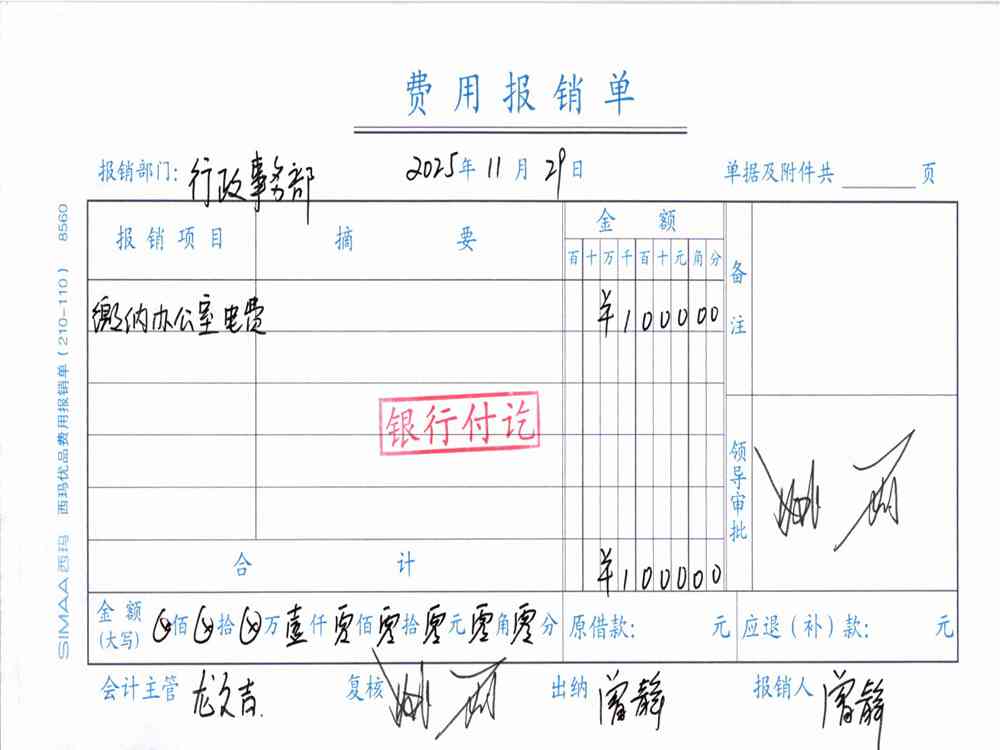 费用报销单
报销部门：行政事务部 2025年11月29日 单据及附件共 页
报销项目 摘要 金额 备注
百十万千百十元角分
缴纳办公室电费 ¥100000
银行付讫
领导审批
合计 ¥100000
金额(大写) ⊗佰⊗拾⊗万壹仟零佰零拾零元零角零分 原借款： 元 应退（补）款： 元
会计主管 龙文吉. 复核 出纳 曾静 报销人 曾静
SIMAA西玛 西玛优品费用报销单（210-110） 8560